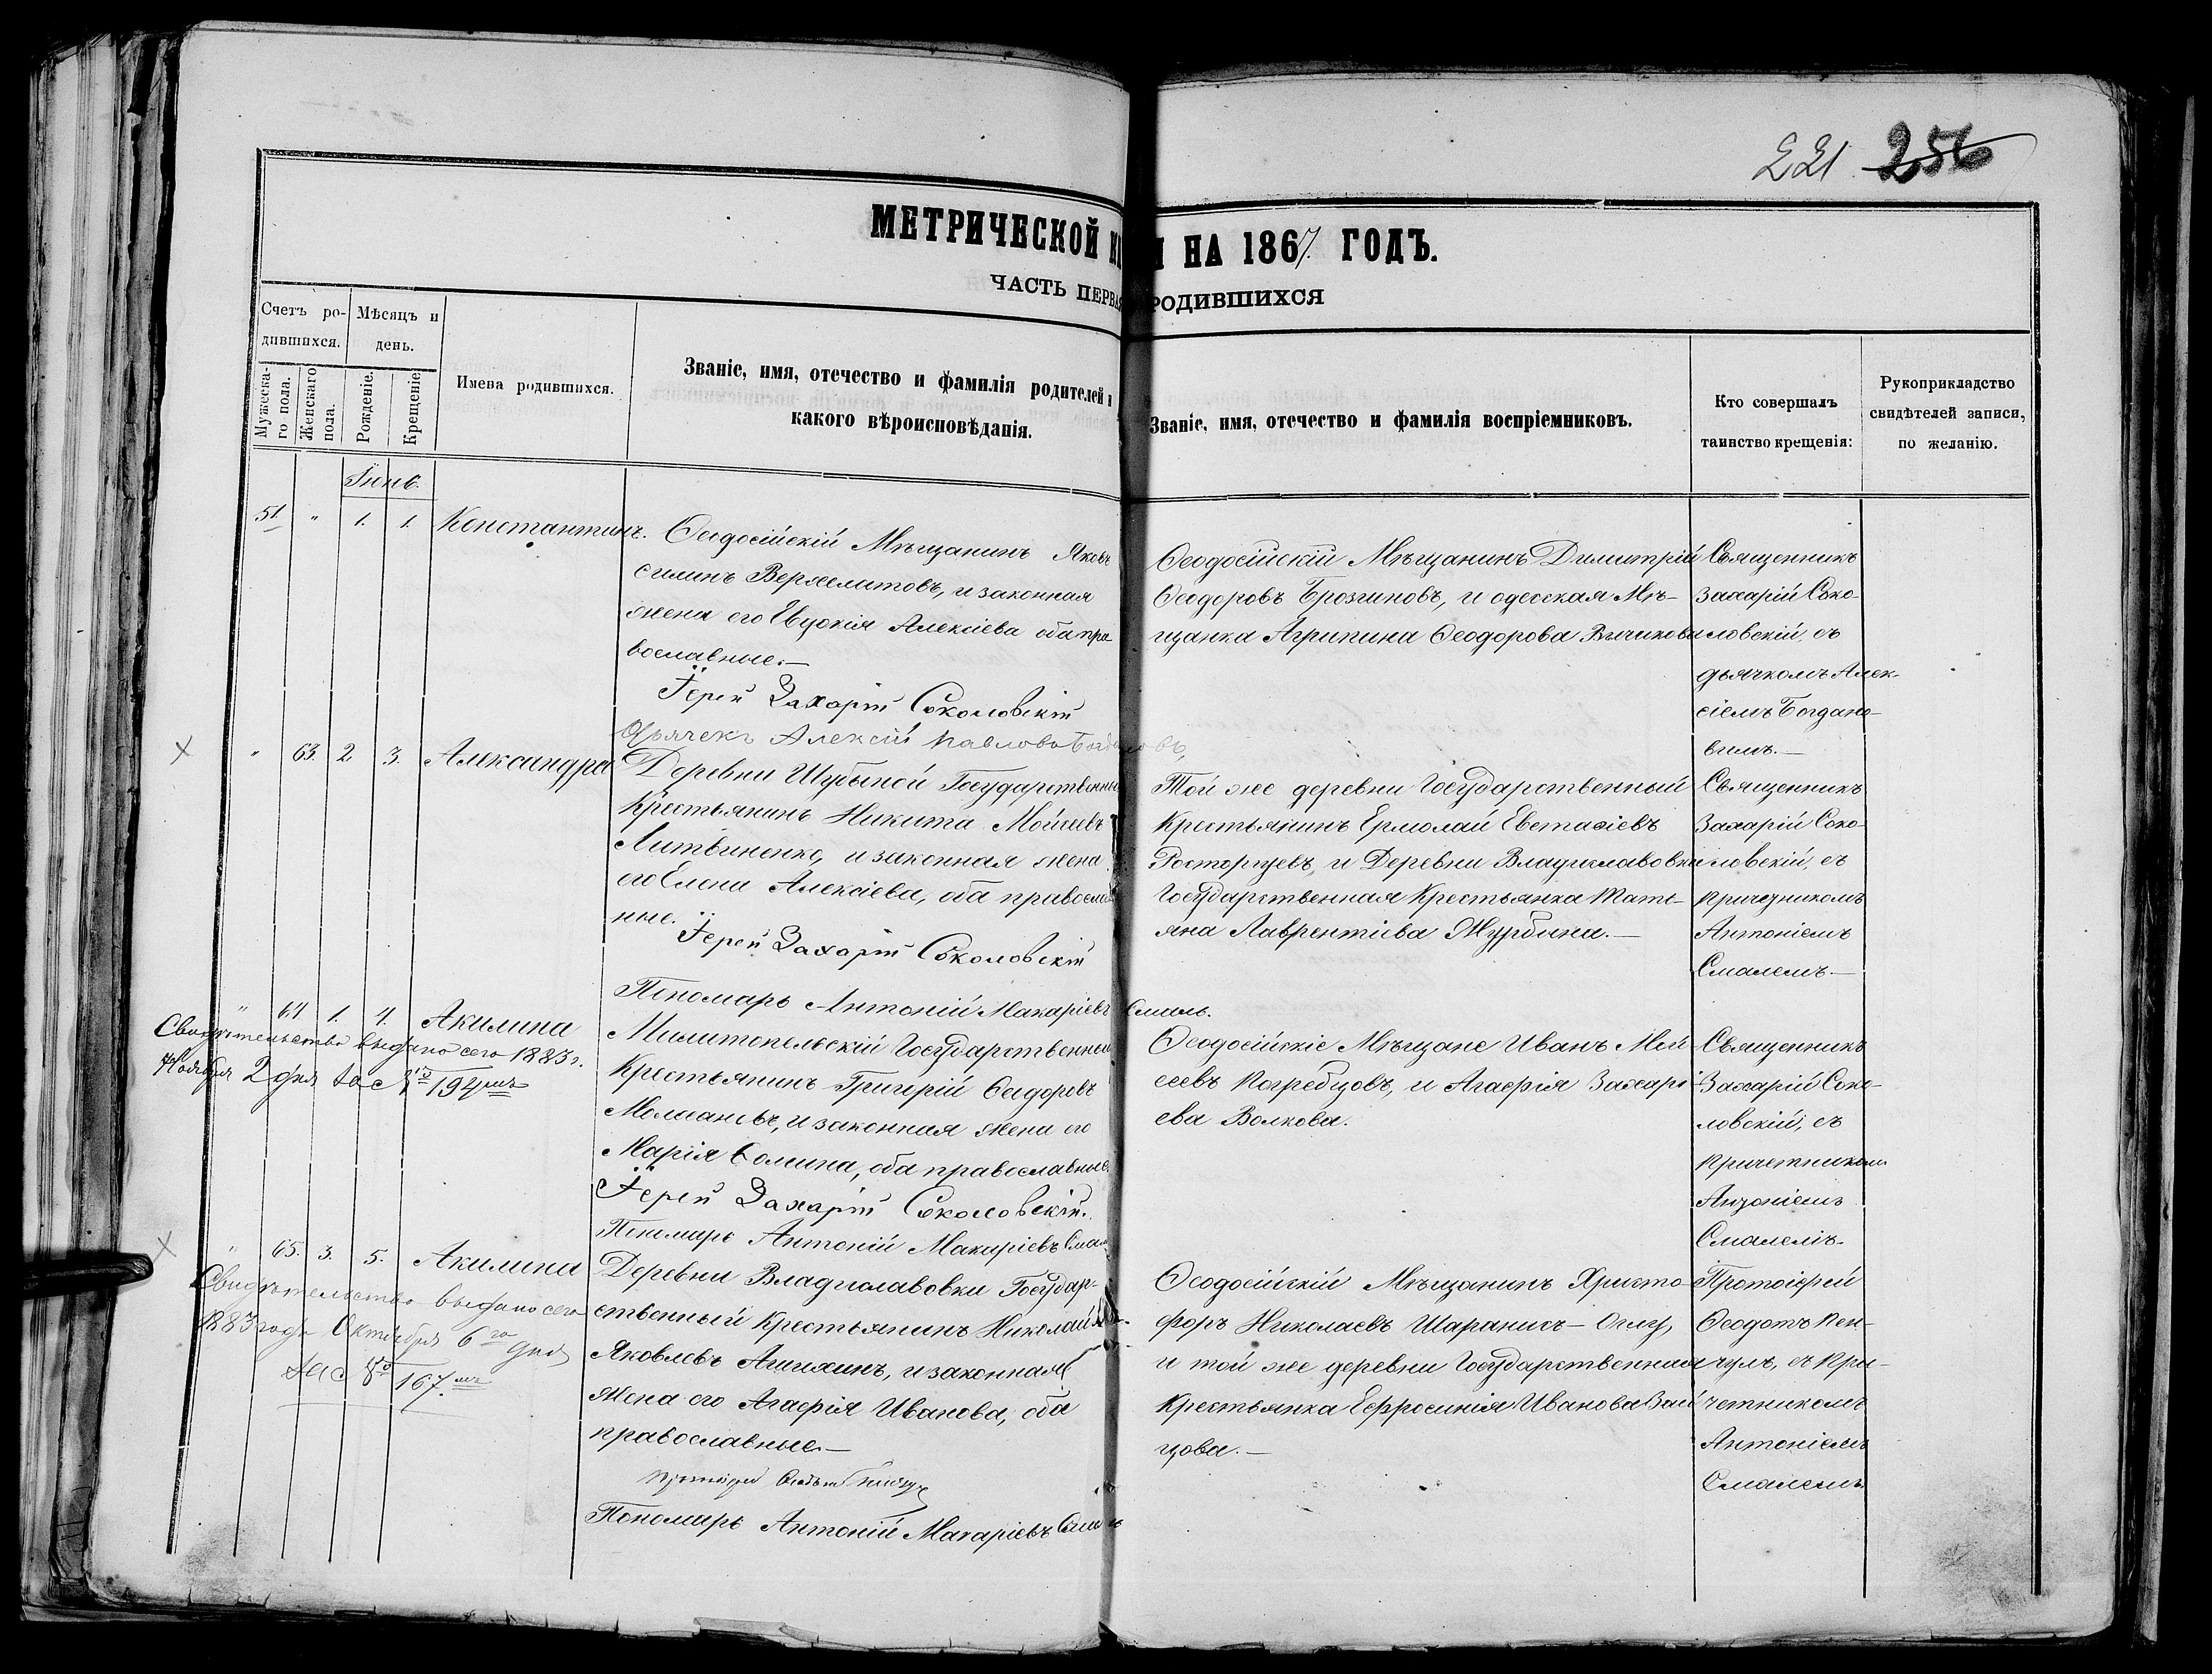 221 256
МЕТРИЧЕСКОЙ КН И НА 1867 ГОДЪ.
ЧАСТЬ ПЕРВАЯ РОДИВШИХСЯ
Счетъ ро-
дившихся.
Мѣсяцъ и
день.
Мужеска-
го пола.
Женскаго
пола.
Рожденіе.
Крещеніе.
Имена родившихся.
Званіе, имя, отечество и фамилія родителей и
какого вѣроисповѣданія.
Званіе, имя, отечество и фамилія воспріемниковъ.
Кто совершалъ
таинство крещенія:
Рукоприкладство
свидѣтелей записи,
по желанію.
51 " 1. 1. Константинъ.
Ѳеодосійскій Мѣщанинъ Яковъ
законная
жена его Евдокія Алексіева оба пра
вославные.—
Іерей Захарій Соколовскій
Дьячекъ Алексій Павловъ
Ѳеодосійскій Мѣщанинъ Димитрій
Ѳеодоровъ Брозгиновъ, и одесская Мѣ-
щанка Агрипина Ѳеодорова
Священникъ
Захарій Соко-
ловскій, съ
дьячкомъ Алек-
сіемъ Богдано-
вымъ.—
" 63. 2 3. Александра
Деревни Шубиной Государственный
Крестьянинъ Никита Мойсеевъ
Литвиненко, и законная жена
его Елена Алексіева, оба православ
ные.
Іерей Захарій Соколовскій
Пономарь Антоній Макаріевъ Смаль.
Той же деревни Государственный
Крестьянинъ Ермолай Евстафіевъ
Росторгуевъ, и Деревни Владиславовки
Государственная Крестьянка Тать-
яна Лаврентіева Журбина.—
Священникъ
Захарій Соко-
ловскій, съ
причетникомъ
Антоніемъ
Смалемъ.—
" 64 1. 4. Акилина
Свидѣтельство выдано сего 1883 г.
Ноября 2 дня за № 194мъ
Милитопельскій Государственный
Крестьянинъ Григорій Ѳеодоровъ
законная жена его
Марія Ѳомина, оба православные.
Іерей Захарій Соколовскій.
Пономарь Антоній Макаріевъ Смаль
Ѳеодосійскіе Мѣщане Иванъ Мой
сеевъ Погребцовъ, и Агафія Захарі-
ева Волкова.
Священникъ
Захарій Соко-
ловскій, съ
причетникомъ
Антоніемъ
Смалемъ.
" 65. 3. 5. Акилина
Свидѣтельство выдано сего
1883 года Октября 6го дня
за № 167.мъ
Деревни Владиславовки Государ-
ственный Крестьянинъ Николай
Яковлевъ и законная
жена его Агафія Иванова, оба
православные.—
Пономарь Антоній Макаріевъ Смаль
Ѳеодосійскій Мѣщанинъ Христо-
форъ Николаевъ Шаранисъ-Оглу,
и той же деревни Государственная
Крестьянка Ефросинія Иванова Зай
цова.—
Протоіерей
Ѳеодотъ Кен-
чулъ, съ при-
четникомъ
Антоніемъ
Смалемъ